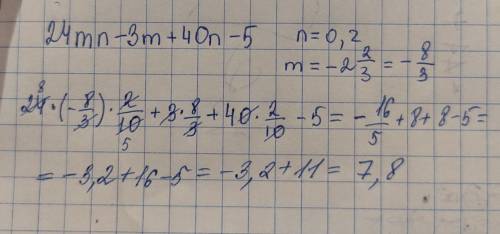 24mn-3m+40n-5 n=0,2
m=-2 2/3 = -8/3
24·(-8/3)·2/10+3·8/3+40·2/10-5=-16/5+8+8-5=
=-3,2+16-5=-3,2+11=7,8